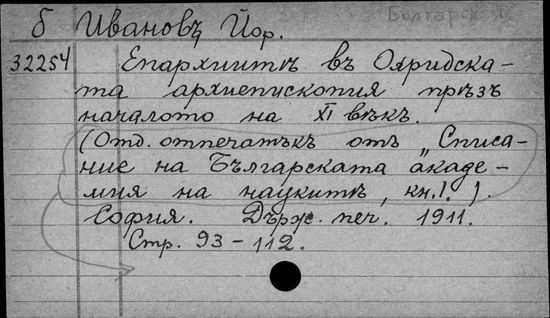 б Ивановъ Йор.
Болгарск. яз
32254 Епархиитѣ въ Охридска-
та архиепископия прѣзъ
началото на XI вѣкъ.
(Отд. отпечатъкъ отъ „Списа-
ние на Българската акаде-
мия на наукитѣ, кн. I.).
София. Държ. печ. 1911.
Стр. 93-112.